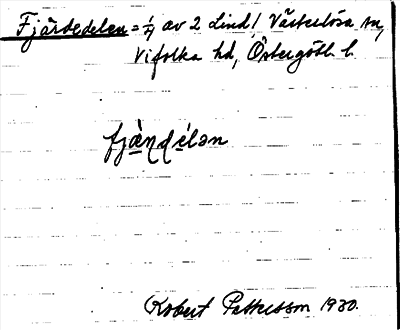 Fjärdedelen = 1/4 av 2 Lind/ Västerlösa sn,
Vifolka hd, Östergötl. l.
fjæ̀ɳɖélən
Robert Pettersson 1930.